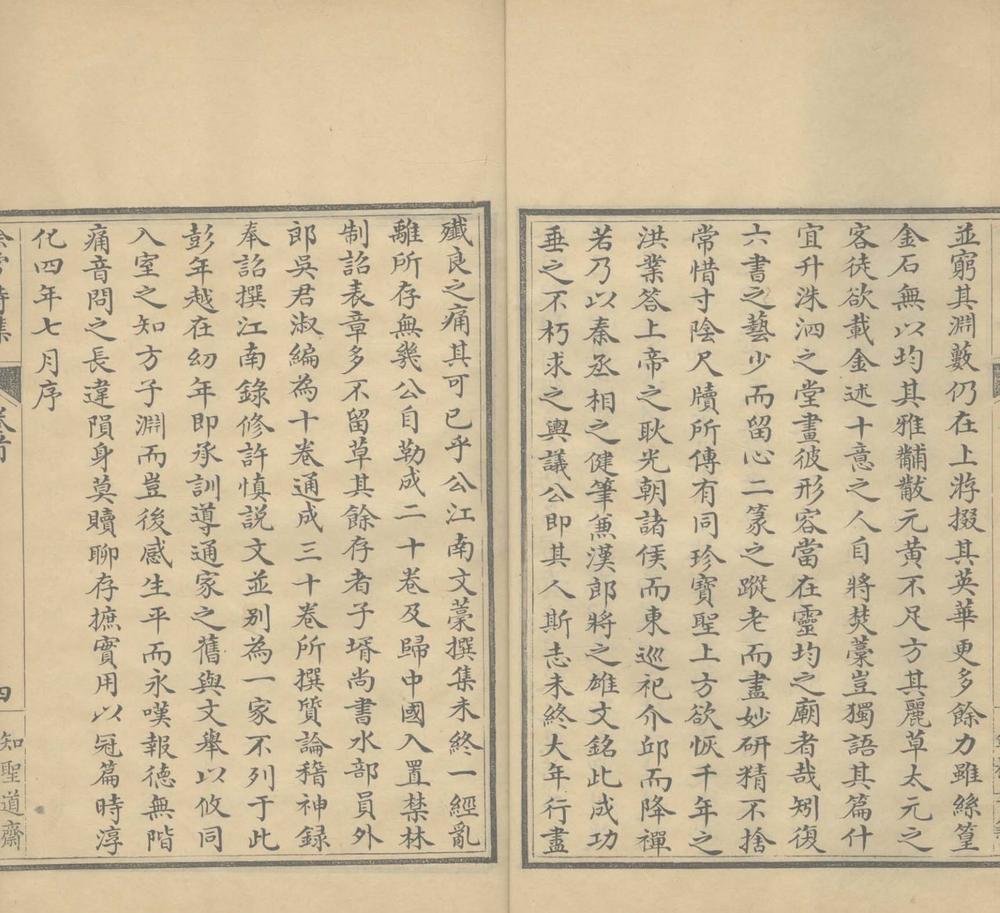 並窮其淵藪仍在上游掇其英華更多餘力雖絲篁
金石無以均其雅黼黻元黃不足方其麗草太元之
客徒欲載金述十意之人自將焚藁豈獨語其篇什
宜升洙泗之堂畫彼形容當在靈均之廟者哉矧復
六書之藝少而留心二篆之蹤老而盡妙研精不捨
常惜寸陰尺牘所傳有同珍寶聖上方欲恢千年之
洪業答上帝之耿光朝諸侯而東巡祀介邱而降禪
若乃以秦丞相之健筆兼漢郎將之雄文銘此成功
垂之不朽求之輿議公即其人斯志未終大年行盡
殲良之痛其可已乎公江南文藁撰集未終一經亂
離所存無幾公自勒成二十卷及歸中國入置禁林
制詔表章多不留草其餘存者子壻尚書水部員外
郎吳君淑編為十卷通成三十卷所撰質論稽神録
奉詔撰江南錄修許慎説文並別為一家不列于此
彭年越在幼年即承訓導通家之舊與文舉以攸同
入室之知方子淵而豈後感生平而永嘆報德無階
痛音問之長違隕身莫贖聊存摭實用以冠篇時淳
化四年七月序
卷首
四
知聖道齋